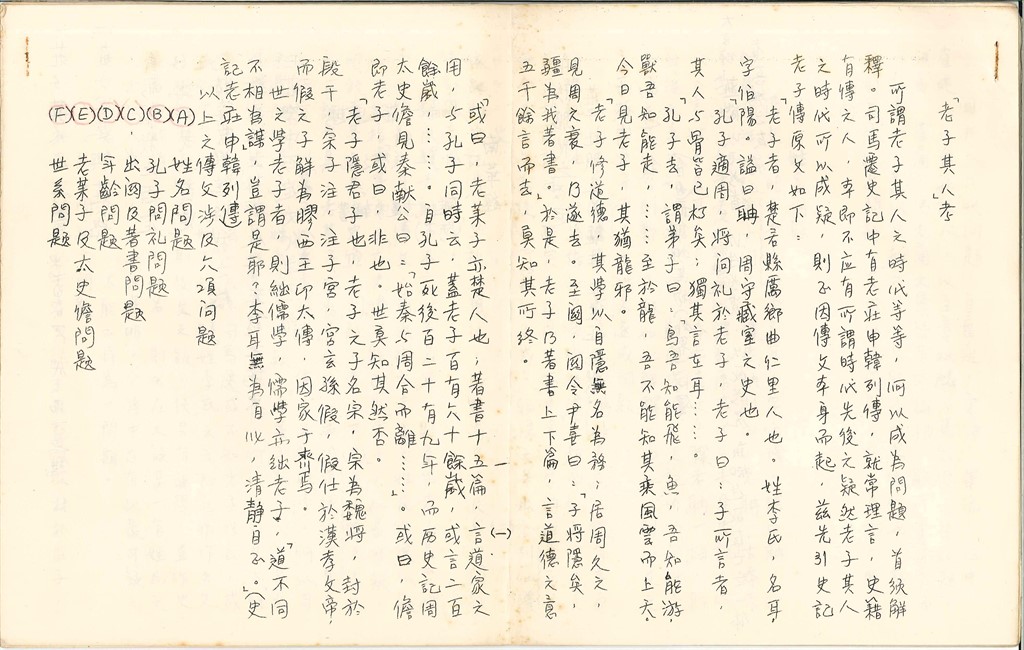 「老子其人」考
所謂老子其人之時代等等,何以成為問題,首須解
釋。司馬遷史記中有老莊申韓列傳,就常理言,史籍
有傳之人,本即不應有所謂時代先後之疑然老子其人
之時代所以成疑,則正因傳文本身而起,茲先引史記
老子傳原文如下:
「老子者,楚苦縣厲鄉曲仁里人也。姓李氏,名耳,
字伯陽。謚曰聃,周守藏室之史也。
「孔子適周,將問礼於老子,老子曰:子所言者,
其人与骨皆已朽矣;獨其言在耳……
「孔子去,謂弟子曰:「鳥吾知能飛,魚,吾知能游,
獸吾知能走,……至於龍,吾不能知其乘風雲而上天。
今日見老子,其猶龍邪。
「老子修道德,其學以自隱無名為務;居周久之,
見周之衰,乃遂去。至關,關令尹喜曰:「子將隱矣,
疆為我著書。」於是,老子乃著書上下篇,言道德之意
五千餘言而去,莫知其所終。
一
(一)
「或曰,老萊子亦楚人也;著書十五篇,言道家之
用,与孔子同時云,蓋老子百有六十餘歲,或言二百
餘歲,……。自孔子死後百二十有九年,而历史記周
太史儋見秦献公曰:「始秦与周合而離……」。或曰,儋
即老子,或曰非也。世莫知其然否。
「老子隱君子也,老子之子名宗,宗為魏將,封於
段干,宗子注,注子宮,宮玄孫假,假仕於漢孝文帝,
而假之子解為膠西王卬太傅,因家于齊焉。
「世之學老子者,則絀儒學,儒學亦絀老子,「道不同
不相為謀,豈謂是耶?李耳無為自化,清靜自正。」(史
記老莊申韓列傳)
以上之傳文涉及六項問題
(A) 姓名問題
(B) 孔子問礼問題
(C) 出關及著書問題
(D) 年齡問題
(E) 老萊子及太史儋問題
(F) 世系問題